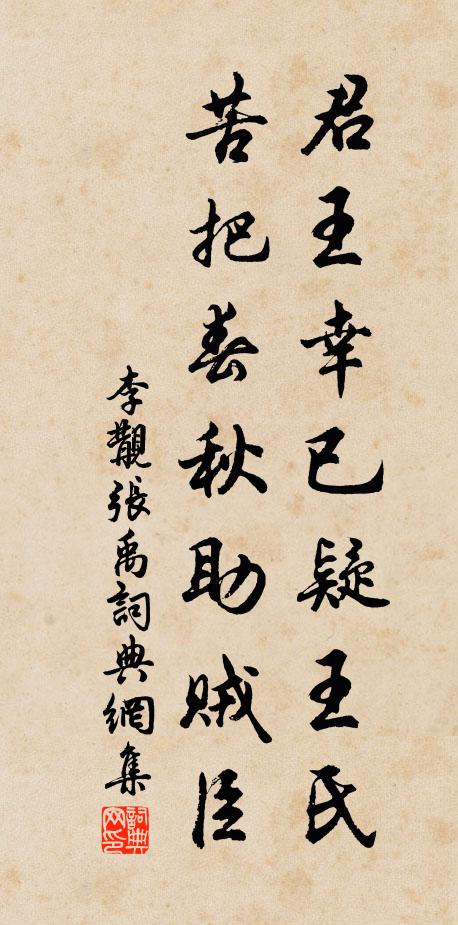 君王幸已疑王氏
苦把春秋助賊臣
李覯張禹詞典網集
詞典网印